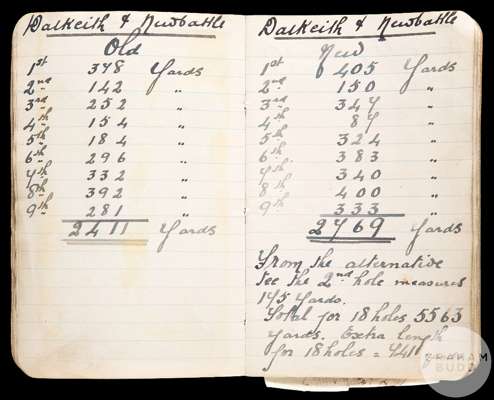 Dalkeith & Newbattle
Old
1st 378 Yards
2nd 142 "
3rd 252 "
4th 154 "
5th 184 "
6th 296 "
7th 332 "
8th 392 "
9th 281 "
2411 Yards
Dalkeith & Newbattle
New
1st 405 Yards
2nd 150 "
3rd 347 "
4th 87 "
5th 324 "
6th 383 "
7th 340 "
8th 400 "
9th 333 "
2769 Yards
From the alternative
tee the 2nd hole measures
175 yards.
Total for 18 holes 5563
yards. Extra length
for 18 holes = 741 yards
GRAHAM
BUDD